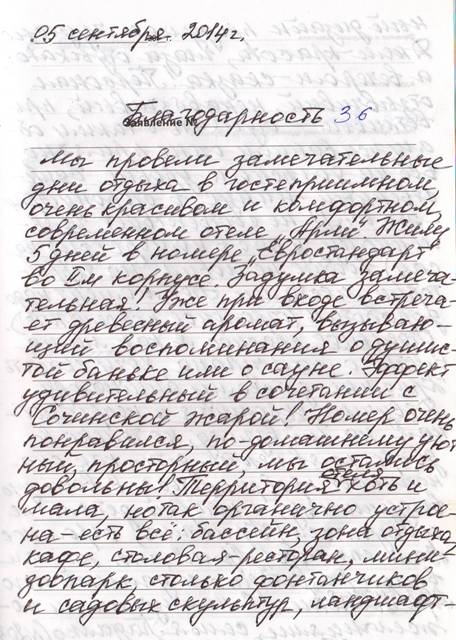 05 сентября 2014г.
Заявление №
Благодарность 36
Мы провели замечательные
дни отдыха в гостеприимном,
очень красивом и комфортном,
современном отеле "Арли" Живу
5 дней в номере "Евростандарт"
во II м корпусе. Задумка замеча-
тельная! Уже при входе встреча-
ет древесный аромат, вызываю-
щий воспоминания о душис-
той баньке или о сауне. Эффект
удивительный в сочетании с
Сочинской жарой! Номер очень
понравился, по-домашнему уют
ный, просторный, мы остались
довольны! Территория отеля хоть и
мала, но так органично устрое-
на - есть всё: бассейн, зона отдыха,
кафе, столовая-ресторан, мини-
зоопарк, столько фонтанчиков
и садовых скульптур, ландшафт-